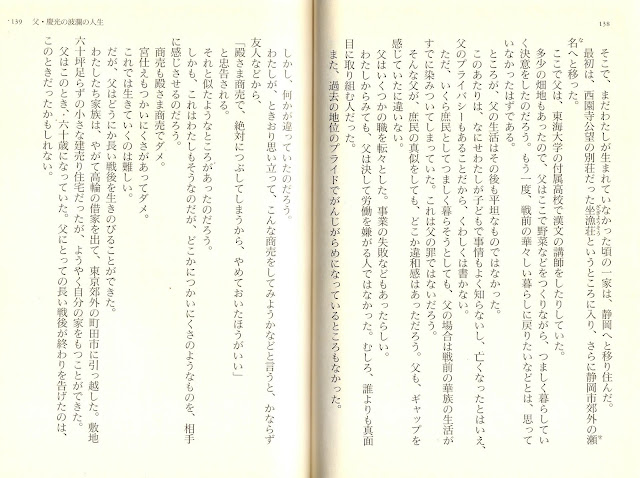 138
そこで、まだわたしが生まれていなかった頃の一家は、静岡へと移り住んだ。
最初は、西園寺公望の別荘だった坐漁荘というところに入り、さらに静岡市郊外の瀬
名へと移った。
ここで父は、東海大学の付属高校で漢文の講師をしたりしていた。
多少の畑地もあったので、父はここで野菜などをつくりながら、つましく暮らしてい
く決意をしたのだろう。もう一度、戦前の華々しい暮らしに戻りたいなどとは、思って
いなかったはずである。
ところが、父の生活はその後も平坦なものではなかった。
このあたりは、なにせわたしが子どもで事情もよく知らないし、亡くなったとはいえ、
父のプライバシーもあることだから、くわしくは書かない。
ただ、いくら庶民としてつましく暮らそうとしても、父の場合は戦前の華族の生活が
すでに染みついてしまっていた。これは父の罪ではないだろう。
そんな父が、庶民の真似をしても、どこか違和感はあっただろう。父も、ギャップを
感じていたに違いない。
父はいくつかの職を転々とした。事業の失敗などもあったらしい。
わたしからみても、父は決して労働を嫌がる人ではなかった。むしろ、誰よりも真面
目に取り組む人だった。
また、過去の地位やプライドでがんじがらめになっているところもなかった。
139 父・慶光の波瀾の人生
しかし、何かが違っていたのだろう。
わたしが、ときおり思い立って、こんな商売をしてみようかなどと言うと、かならず
友人などから、
「殿さま商売で、絶対につぶしてしまうから、やめておいたほうがいい」
と忠告される。
それと似たようなところがあったのだろう。
しかも、これはわたしもそうなのだが、どこかにつかいにくさのようなものを、相手
に感じさせるのだろう。
商売も殿さま商売でダメ。
宮仕えもつかいにくさがあってダメ。
これでは生きていくのは難しい。
だが、父はどうにか長い戦後を生きのびることができた。
わたしたち家族は、やがて高輪の借家を出て、東京郊外の町田市に引っ越した。敷地
六十坪足らずの小さな建売り住宅だったが、ようやく自分の家をもつことができた。
父はこのとき、六十歳になっていた。父にとっての長い戦後が終わりを告げたのは、
このときだったかもしれない。